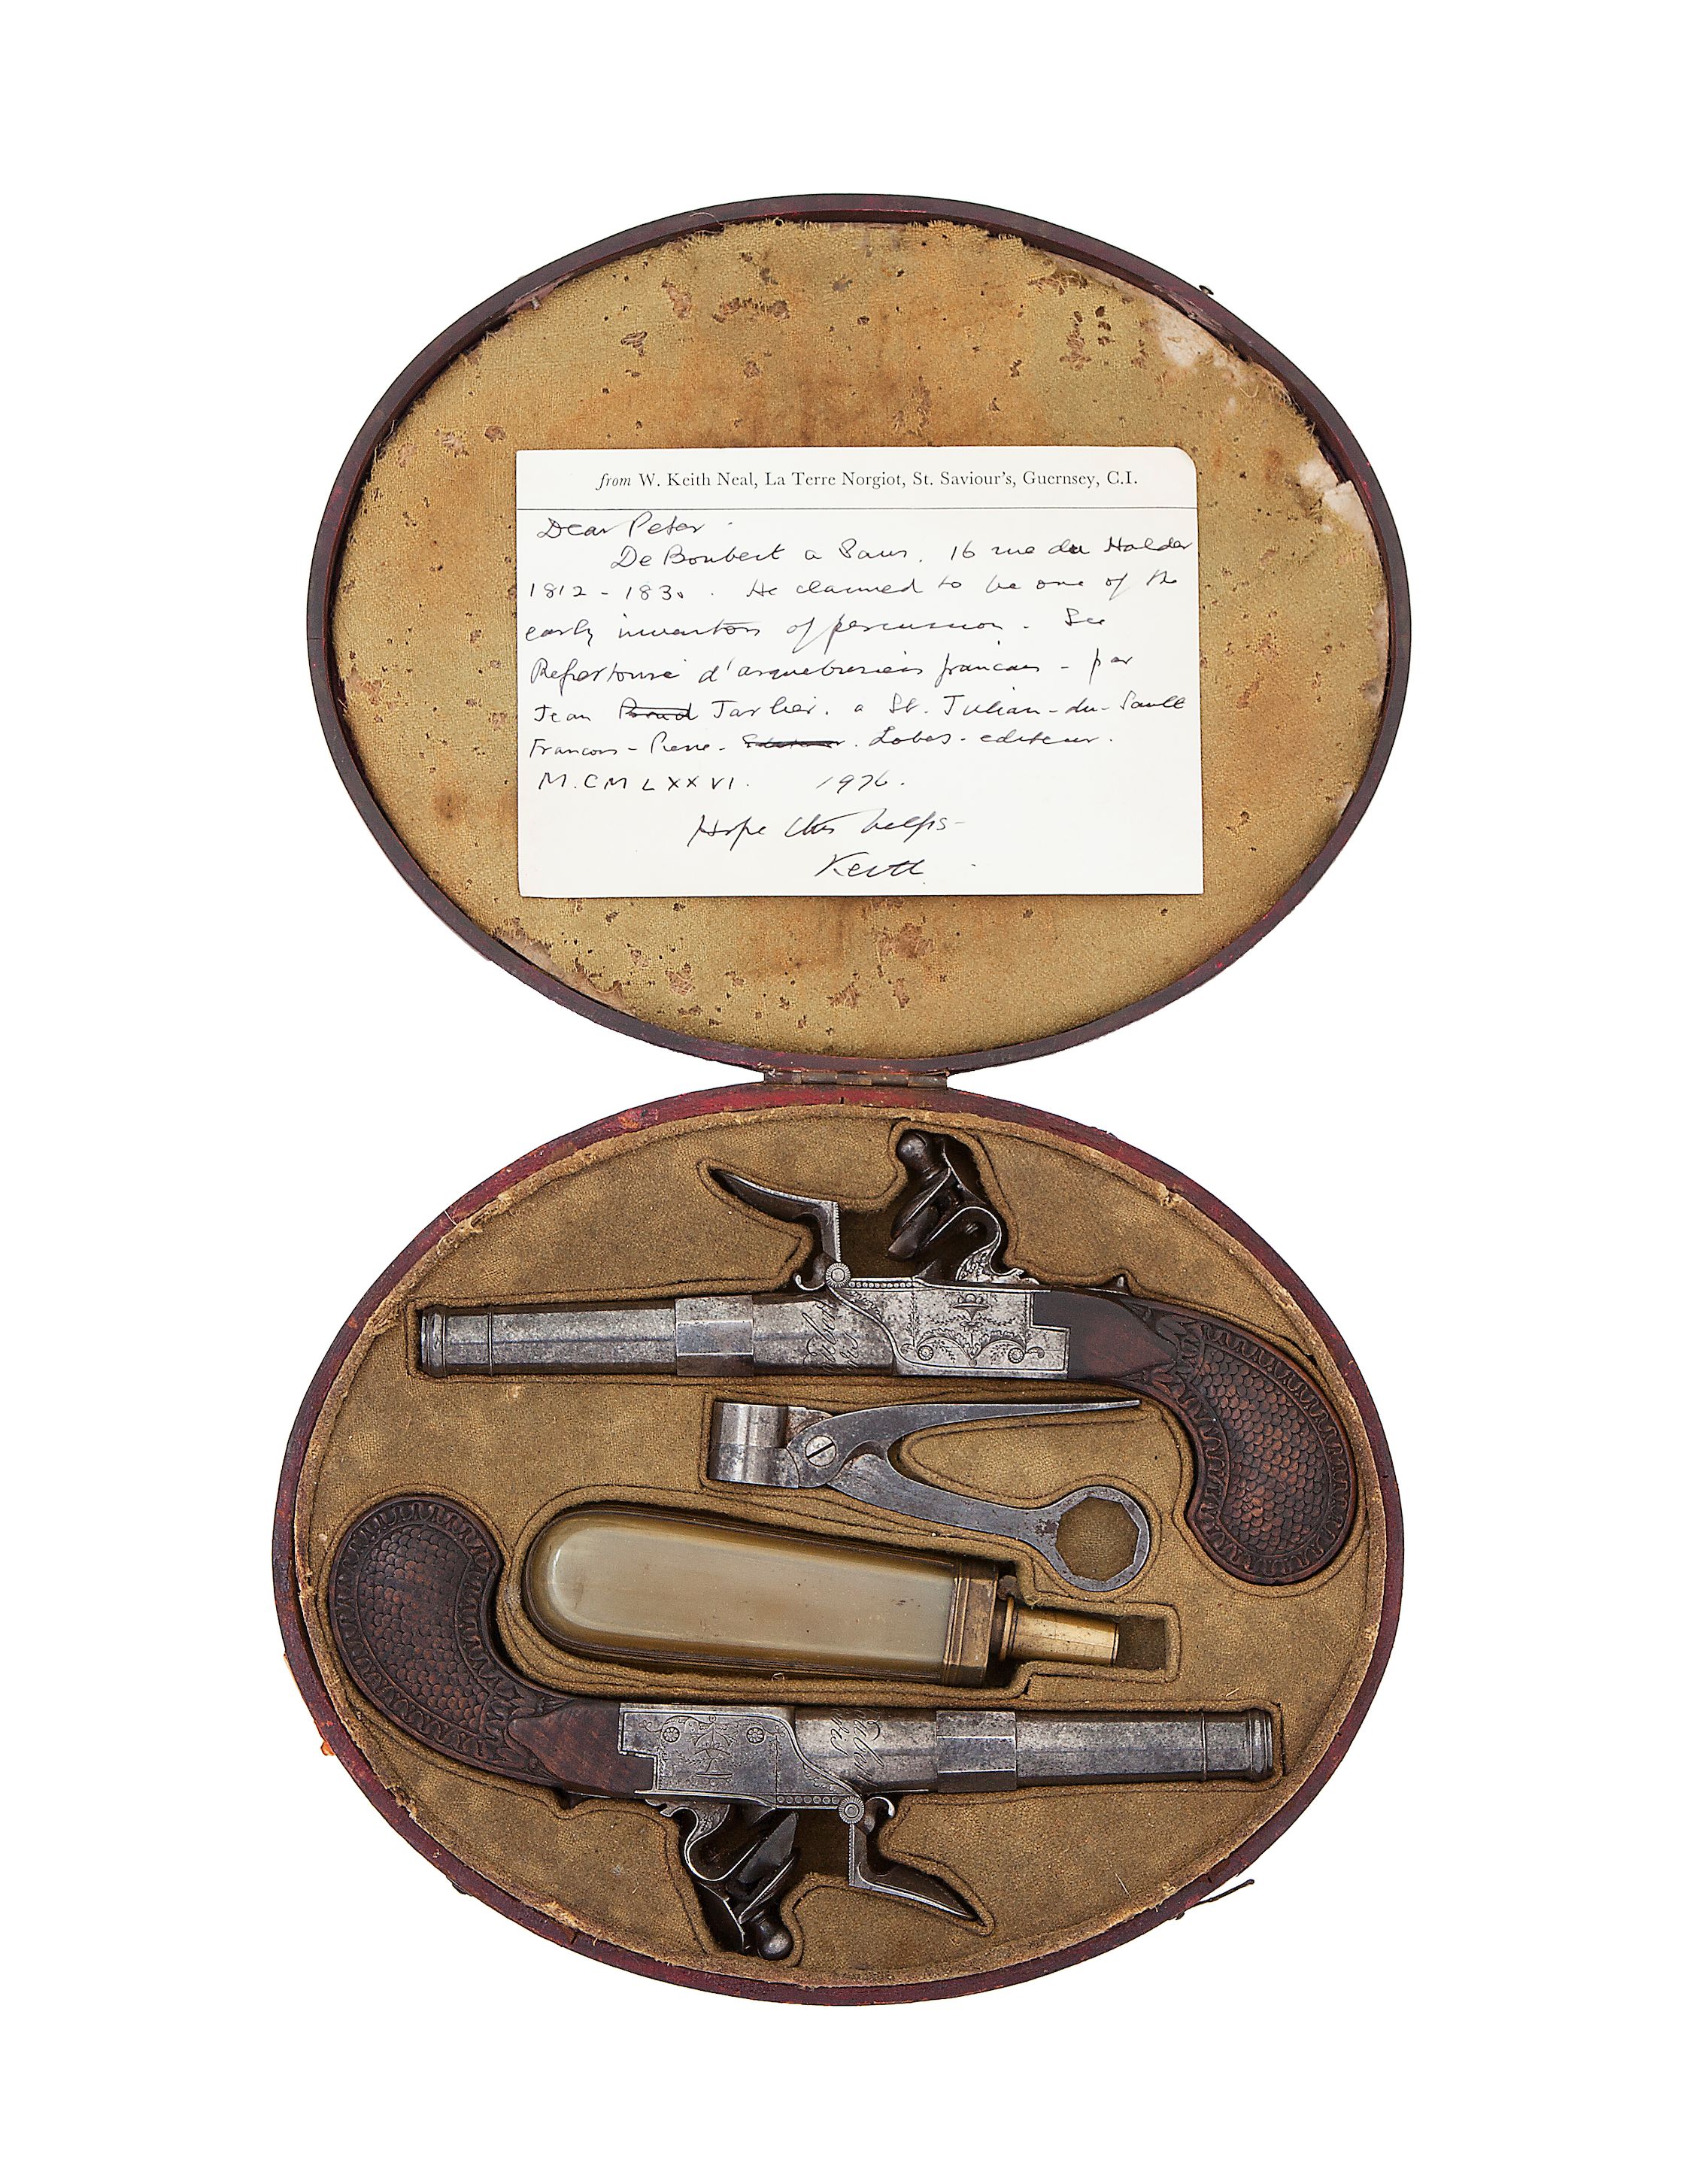 from W. Keith Neal, La Terre Norgiot, St. Saviour's, Guernsey, C.I.
Dear Peter.
De Boubert a Paris. 16 rue du Halder
1812 - 1830. He claimed to be one of the
early inventors of percussion. See
Repertoire d'arquebusiers francais - par
Jean Jarlier. a St. Julian-du-Sault
Francois - Pierre - Lobes - editeur.
M.CMLXXVI. 1976.
Hope this helps -
Keith